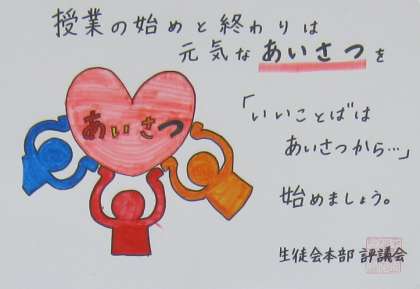 授業の始めと終わりは
元気なあいさつを
あいさつ
「いいことば"は
あいさつから…」
始めましょう。
生徒会本部 評議会